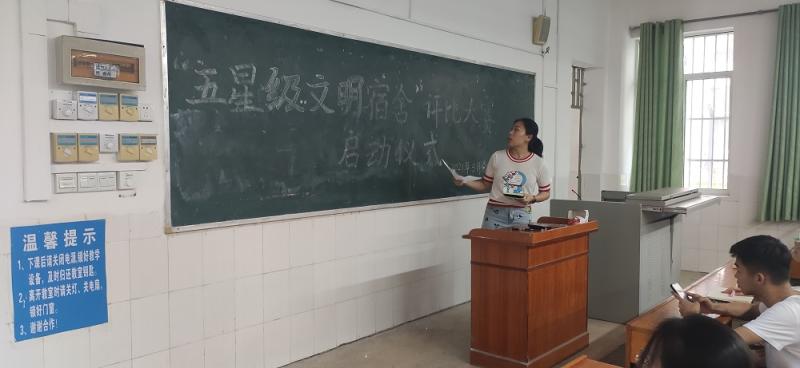 “五星级文明宿舍”评比大赛
启动仪式
温馨提示
1、下课后请关闭电源,锁好教学
设备,及时归还教室钥匙。
2、离开教室时请关灯、关电扇,
锁好门窗。
3、谢谢合作!